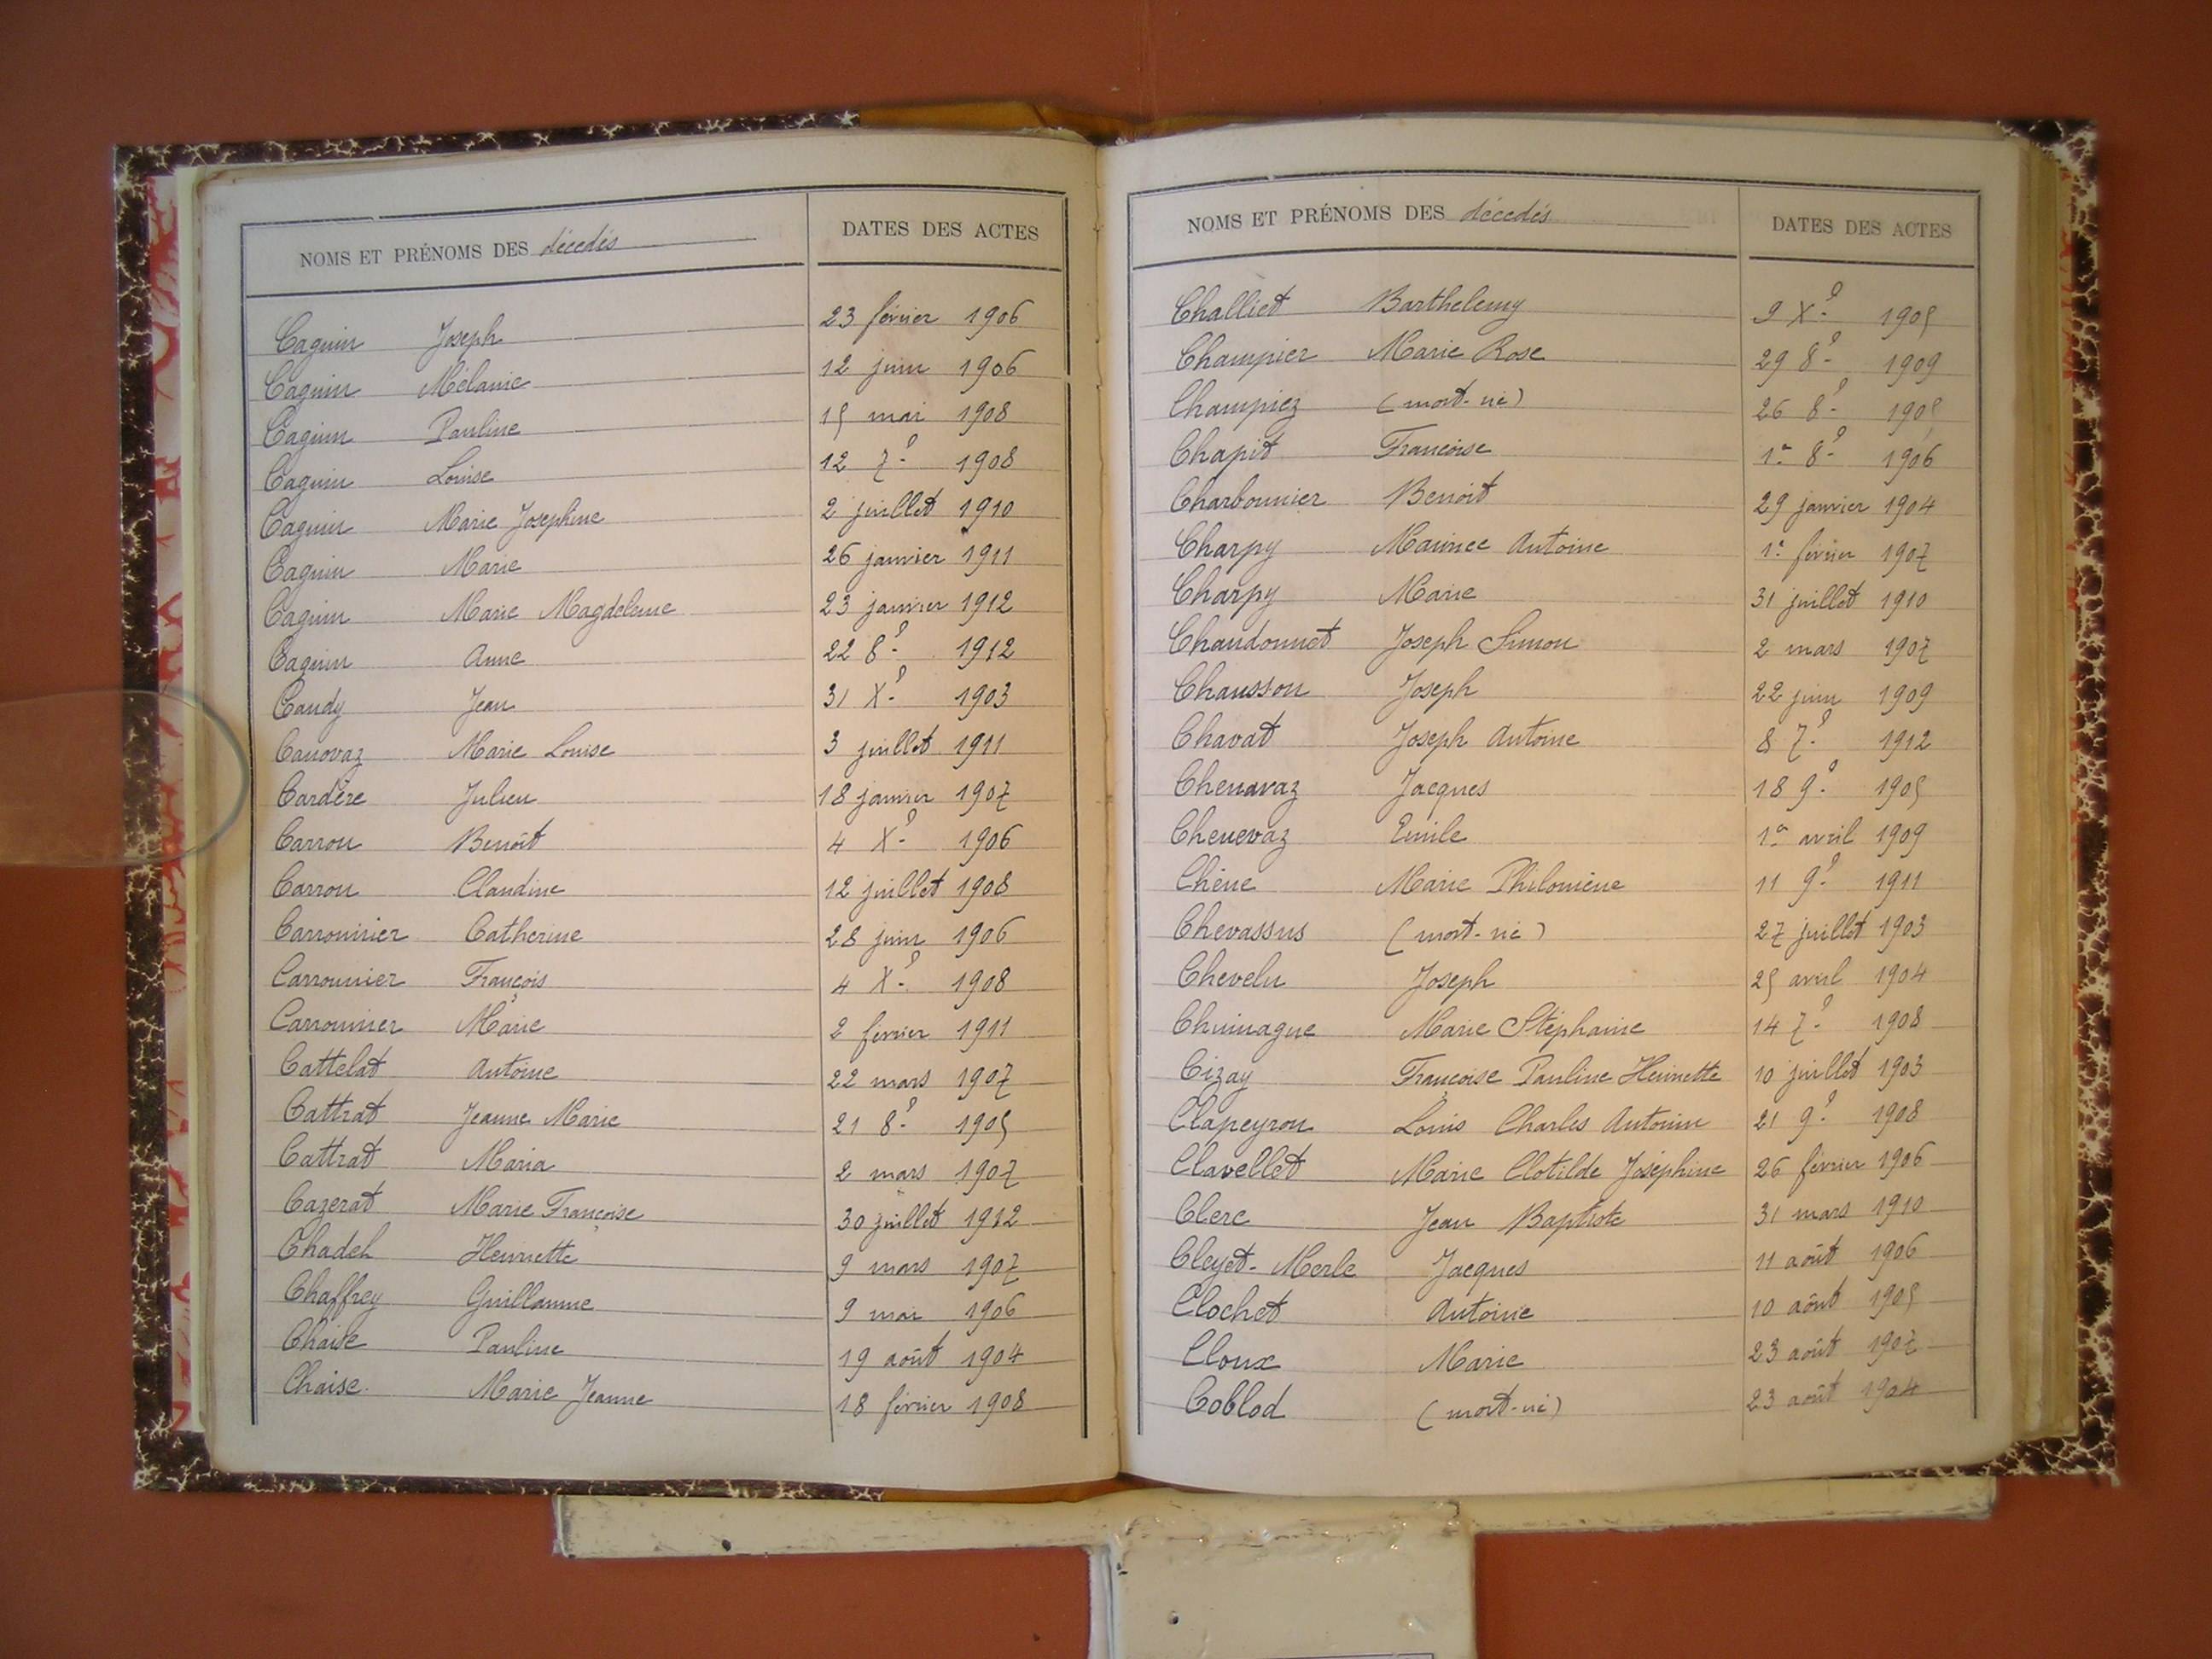 NOMS ET PRÉNOMS DES décedés DATES DES ACTES
Caguin Joseph 23 février 1906
Caguin Mélanie 12 juin 1906
Caguin Pauline 15 mai 1908
Caguin Louise 12 7º 1908
Caguin Marie Josephine 2 juillet 1910
Caguin Marie 26 janvier 1911
Caguin Marie Magdeleine 23 janvier 1912
Caguin Anne 22 8º 1912
Candy Jean 31 Xº 1903
Canovaz Marie Louise 3 juillet 1911
Cardère Julien 18 janvier 1907
Carron Benoît 4 Xº 1906
Carron Claudine 12 juillet 1908
Carronnier Catherine 28 juin 1906
Carronnier François 4 Xº 1908
Carronnier Marie 2 février 1911
Cattelat Antoine 22 mars 1907
Cattrat Jeanne Marie 21 8º 1905
Cattrat Maria 2 mars 1907
Cazerat Marie Françoise 30 juillet 1912
Chadel Henriette 9 mars 1907
Chaffrey Guillaume 9 mai 1906
Chaise Pauline 19 août 1904
Chaise Marie Jeanne 18 février 1908
NOMS ET PRÉNOMS DES décedés DATES DES ACTES
Challiet Barthelemy 9 Xº 1905
Champier Marie Rose 29 8º 1909
Champiez (mort-né) 26 8º 1905
Chapit Francoise 1er 8º 1906
Charbonnier Benoit 29 janvier 1904
Charpy Maurice Antoine 1er février 1907
Charpy Marie 31 juillet 1910
Chaudonnet Joseph Simon 2 mars 1907
Chausson Joseph 22 juin 1909
Chavat Joseph Antoine 8 7º 1912
Chenavaz Jacques 18 9º 1905
Chenevaz Emile 1er avril 1909
Chêne Marie Philomène 11 9º 1911
Chevassus (mort-né) 27 juillet 1903
Chevelu Joseph 25 avril 1904
Marie Stéphanie 14 7º 1908
Cizay Françoise Pauline Henriette 10 juillet 1903
Clapeyron Louis Charles Antonin 21 9º 1908
Clavellet Marie Clotilde Joséphine 26 février 1906
Clerc Jean Baptiste 31 mars 1910
Cleyet-Merle Jacques 11 août 1906
Clochet Antoine 10 août 1905
Cloux Marie 23 août 1907
Coblod (mort-né) 23 août 1904